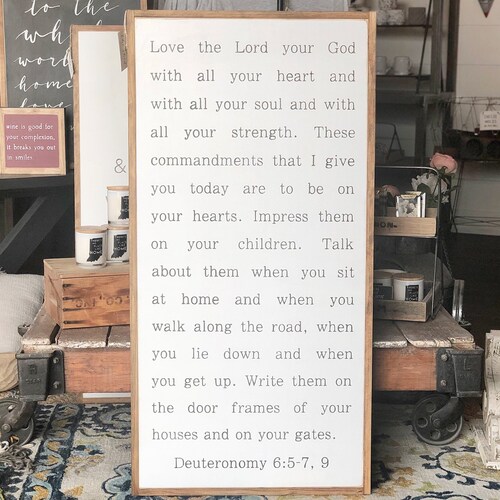 to the
work
home
love
wine is good for
your complexion,
it breaks you out
in smiles
&
Love the Lord your God
with all your heart and
with all your soul and with
all your strength. These
commandments that I give
you today are to be on
your hearts. Impress them
on your children. Talk
about them when you sit
at home and when you
walk along the road, when
you lie down and when
you get up. Write them on
the door frames of your
houses and on your gates.
Deuteronomy 6:5-7, 9